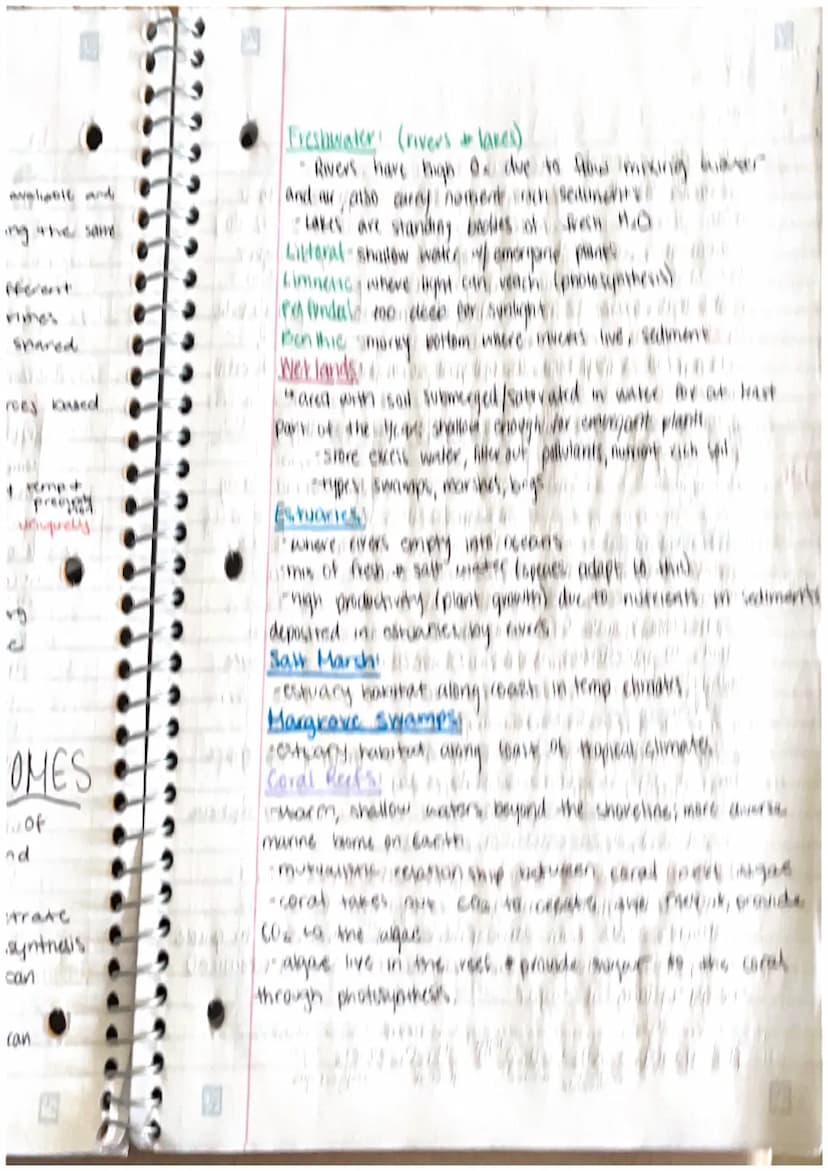 available and
ng the same
fferent
shared
based
temp +
uniquely
OMES
of
nd
trate
synthesis
can
can
Freshwater: (rivers + lakes)
- Rivers have high O2 due to flow mixing water
and air, also carry nutrient rich sediments
- Lakes are standing bodies of fresh H2O
Littoral- shallow water w/ emergent plants
Limnetic- where light can reach (photosynthesis)
too deep for sunlight
Benthic- bottom where live, sediment
Wetlands:
area with soil submerged/saturated in water for at least
part of the year, shallow enough for emergent plants
- store excess water, filter out pollutants, nutrient rich soil
- types: swamps, marshes, bogs
Estuaries:
- where rivers empty into oceans
- mix of fresh + salt water (species adapt to this)
- high productivity (plant growth) due to nutrients in sediments
deposited in estuaries by rivers
Salt Marsh:
- estuary habitat along coast in temp climates
Mangrove Swamps:
- estuary habitat along coast of tropical climates
Coral Reefs:
- warm, shallow waters beyond the shoreline; more diverse
marine biome on Earth
- relationship between coral algae
- coral takes CO2 to create the provide
CO2 to the algae
- algae live in the reef + provide sugar to the coral
through photosynthesis.